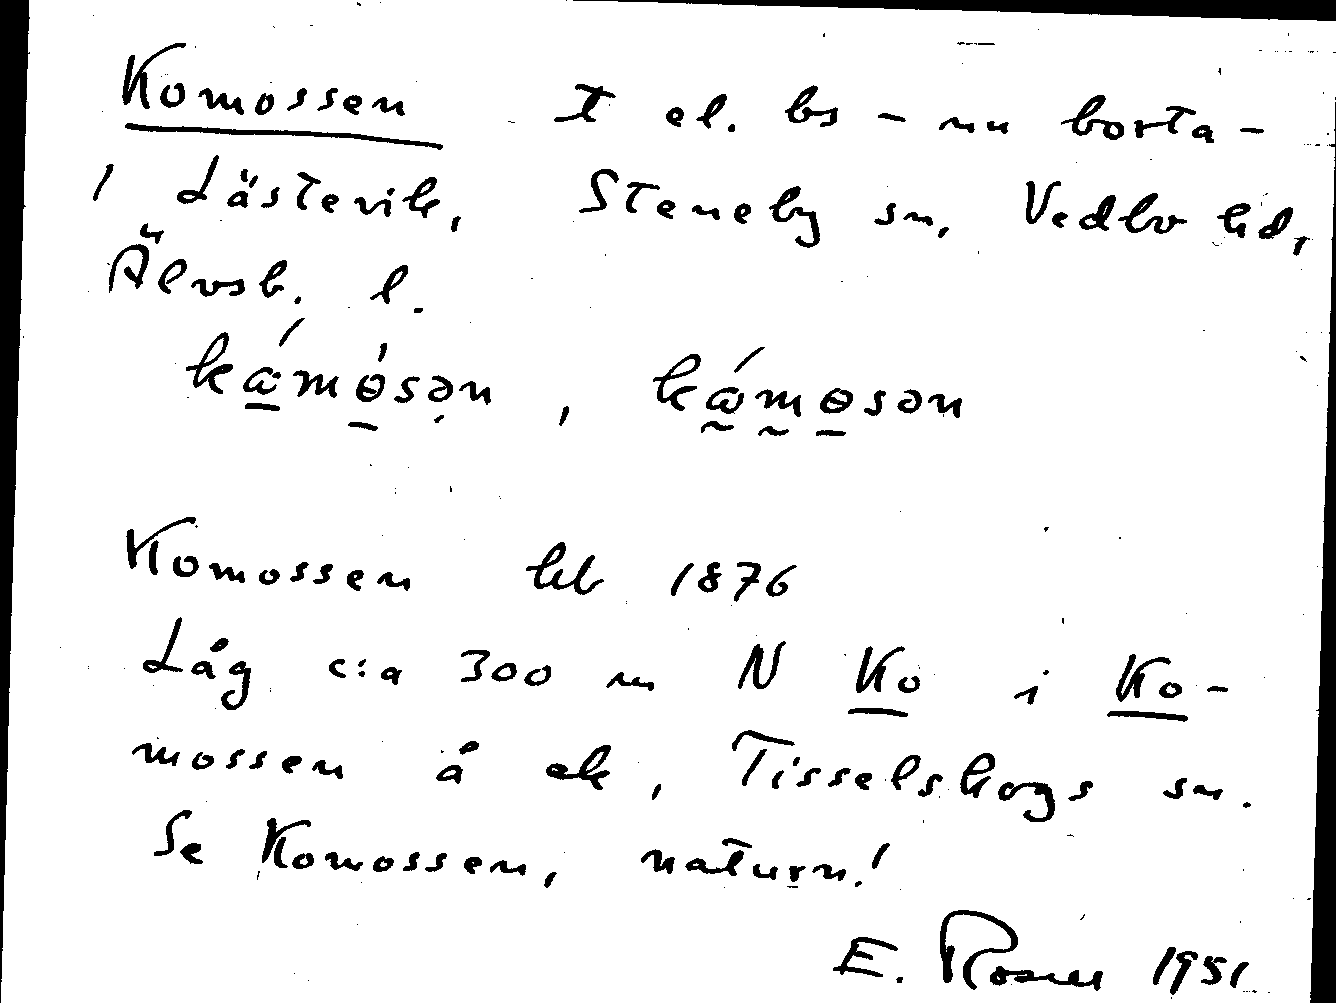 Komossen t el. bs - nu borta -
i Lästevik, Steneby sn, Vedbo hd,
Älvsb. l.
kɑ́mɵ́sən, kɑ́mɵsən
Komossen hb 1876
Låg c:a 300 m N Ko i Ko-
mossen å ek, Tisselskogs sn.
Se Komossen, naturn!
E. Rosell 1951